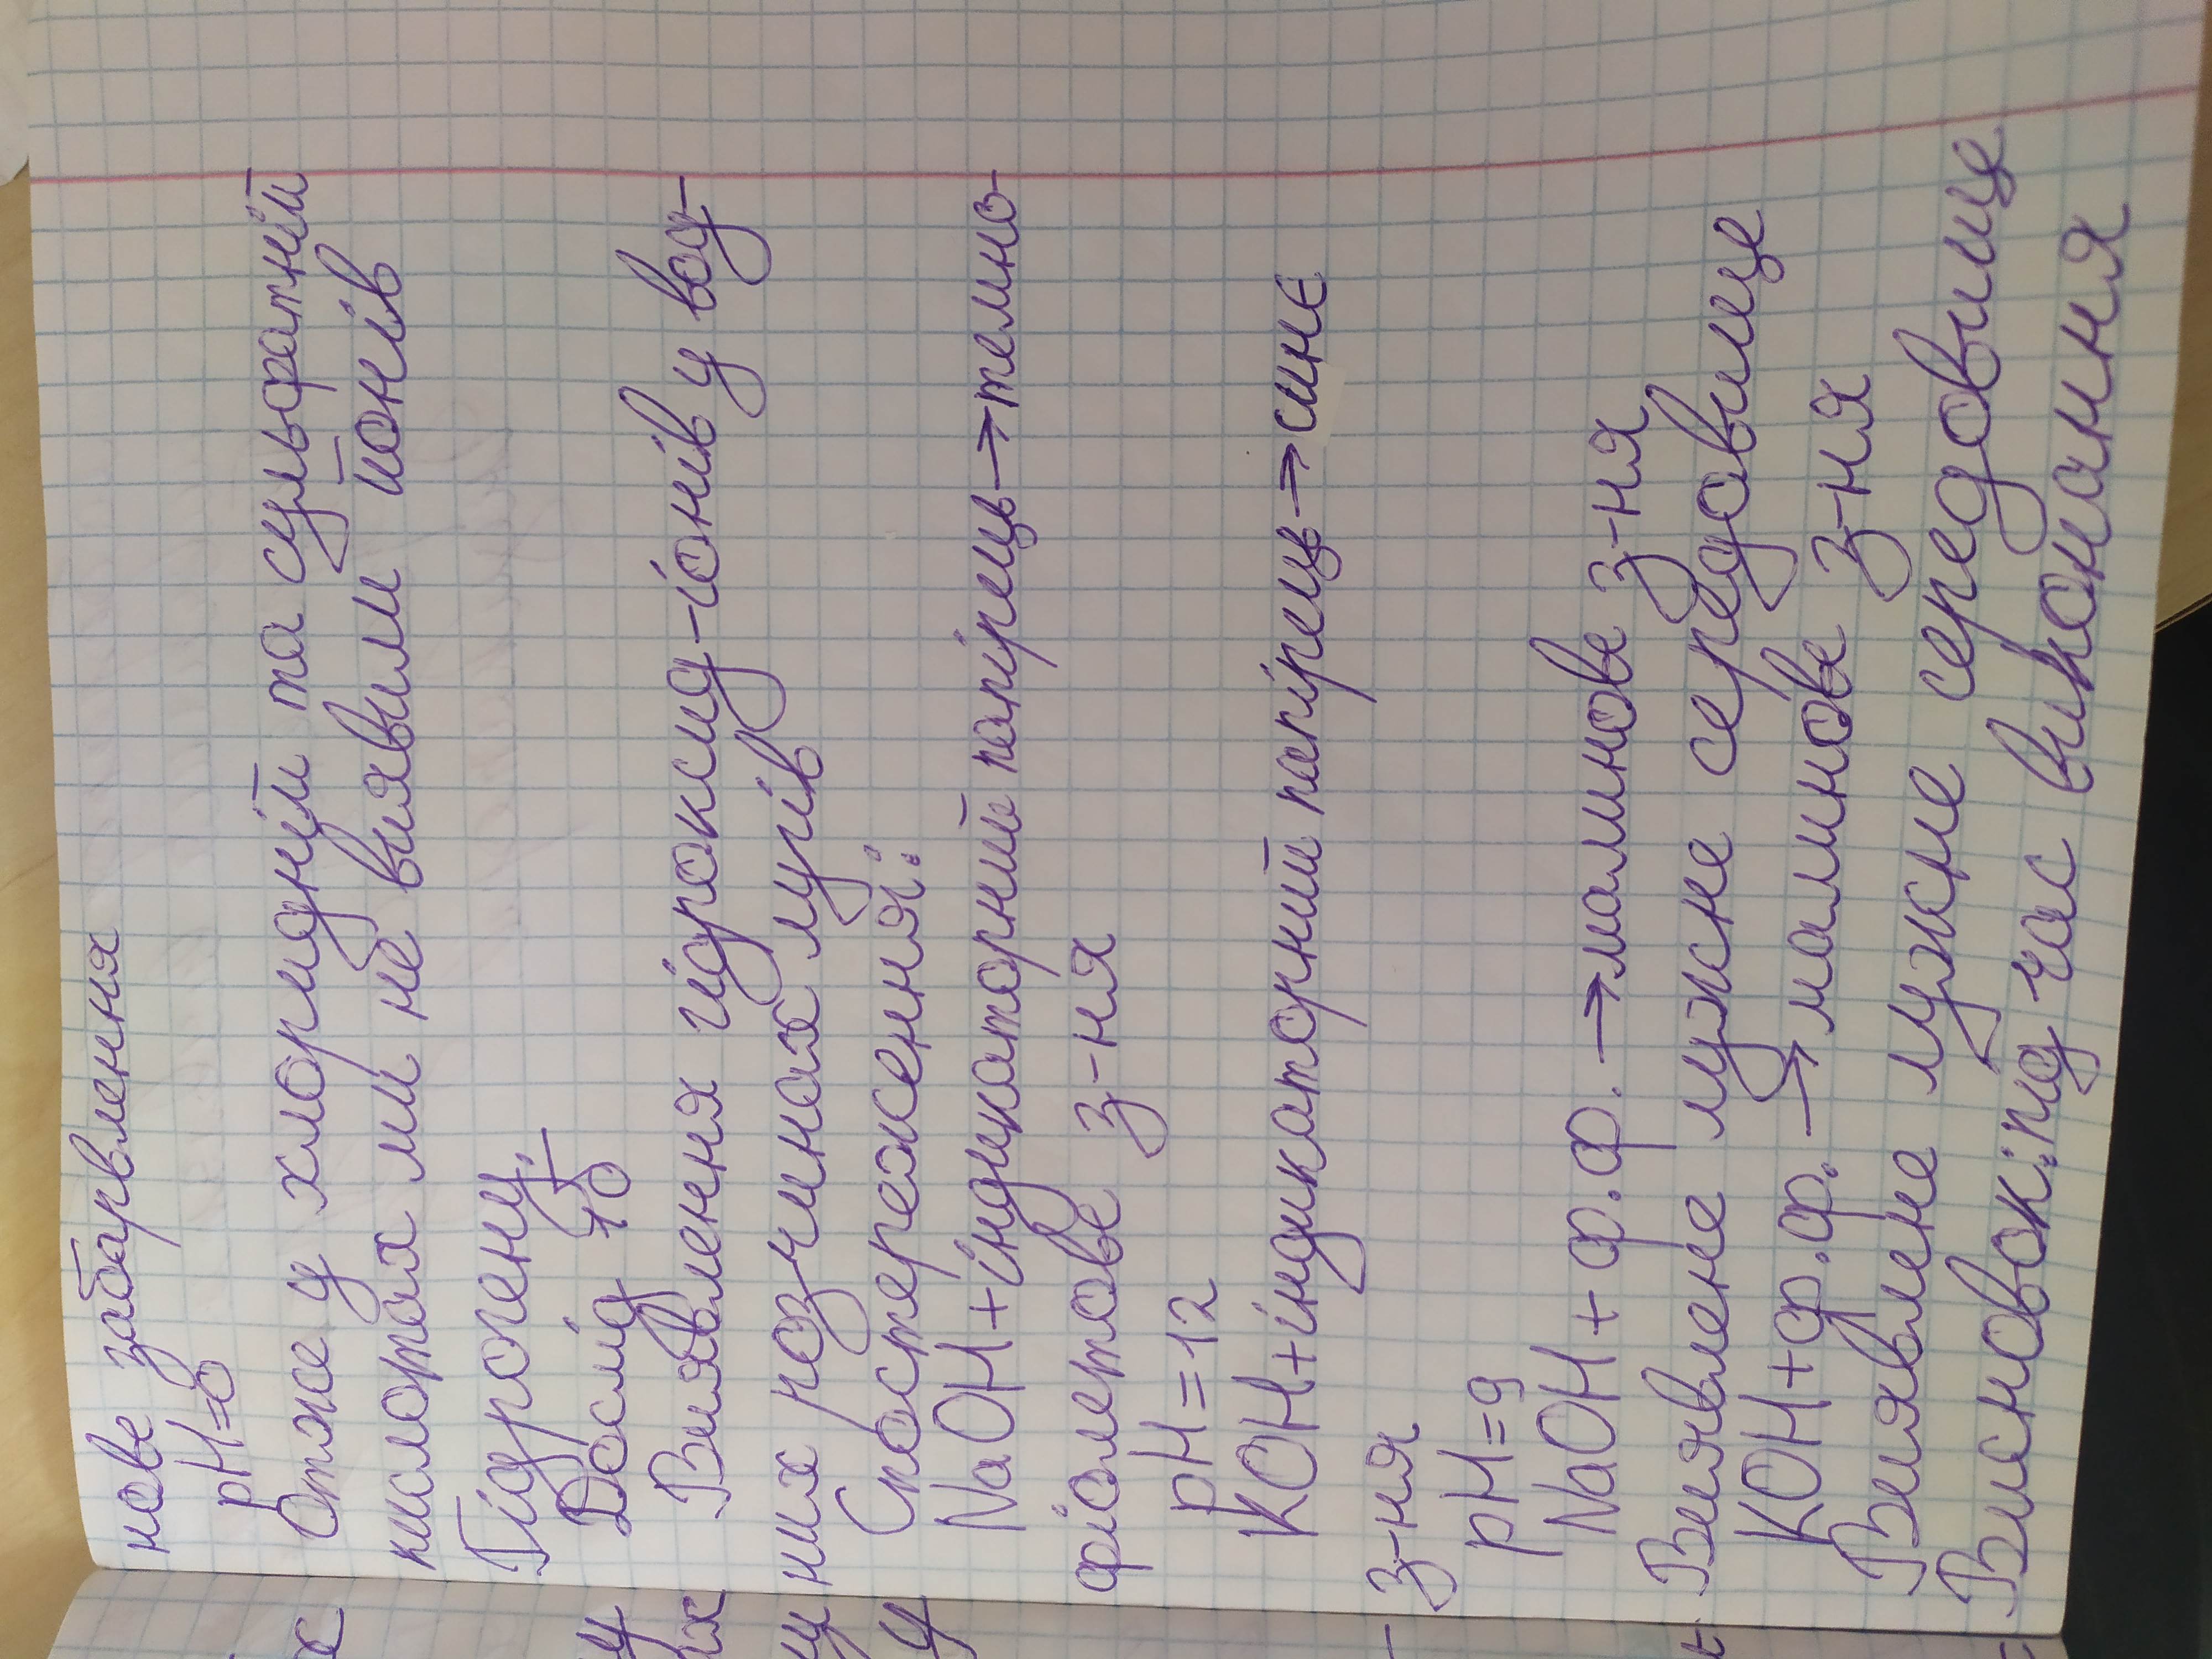 нове забарвлення
pH=0
Отже у хлоридній та сульфатній
кислотах ми не виявили йонів
Гідрогену.
Дослід 10
Виявлення гідроксид-іонів у вод-
них розчинах лугів
Спостереження:
NaOH+індикаторний папірець→темно-
фіолетове з-ня
pH=12
KOH+індикаторний папірець→синє
з-ня
pH=9
NaOH+ф.ф.→малинове з-ня
Виявлене лужне середовище
KOH+ф.ф.→малинове з-ня
Виявлене лужне середовище
Висновок: під час виконання